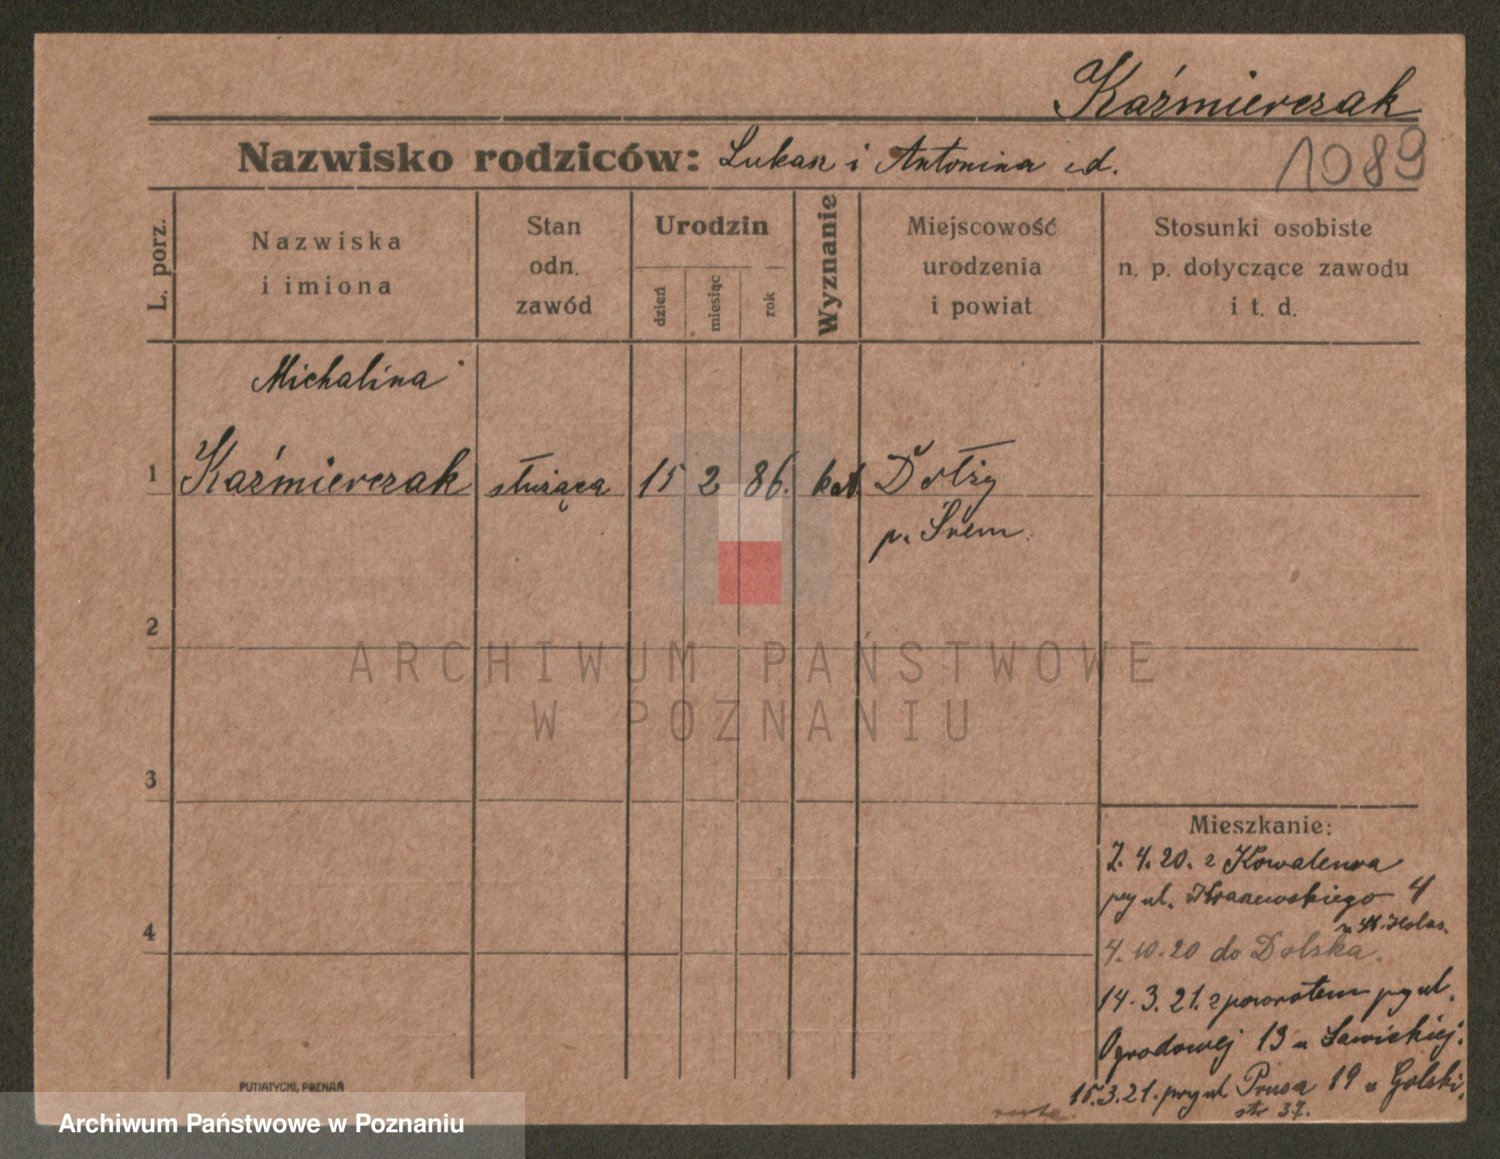 Kaźmierczak
Nazwisko rodziców: Łukasz i Antonina
1089
L. porz.
Nazwiska
i imiona
Stan
odn.
zawód
Urodzin
dzień
miesiąc
rok
Wyznanie
Miejscowość
urodzenia
i powiat
Stosunki osobiste
n. p. dotyczące zawodu
i t. d.
Michalina
1 Kaźmierczak służąca 15 2 86. kat. Dołży
p. Śrem.
2
3
4
Mieszkanie:
7.4.20. z Kowalewa
przy ul. Kraszewskiego 4
4.10.20 do Dolska.
14.3.21. z powrotem przy ul.
Ogrodowej 13 u Sawickiej.
15.3.21. przy ul. Prusa 19 u Golski.
str 37.
PUTIATYCKI, POZNAŃ
ARCHIWUM PAŃSTWOWE
W POZNANIU
Archiwum Państwowe w Poznaniu